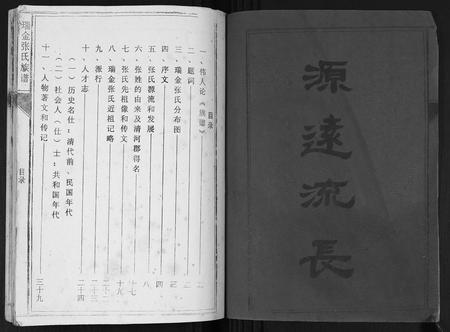 源遠流長
瑞金张氏族谱
目录
目录
一、伟人论《族谱》
二、题词
三、瑞金张氏分布图
四、序文
五、张氏源流和发展
六、张姓的由来及清河郡得名
七、张氏先祖像和传文
八、瑞金张氏近祖记略
九、派行
十、人才志
（一）历史名仕：清代前、民国年代
（二）社会人（仕）士：共和国年代
十一、人物著文和传记
三十九